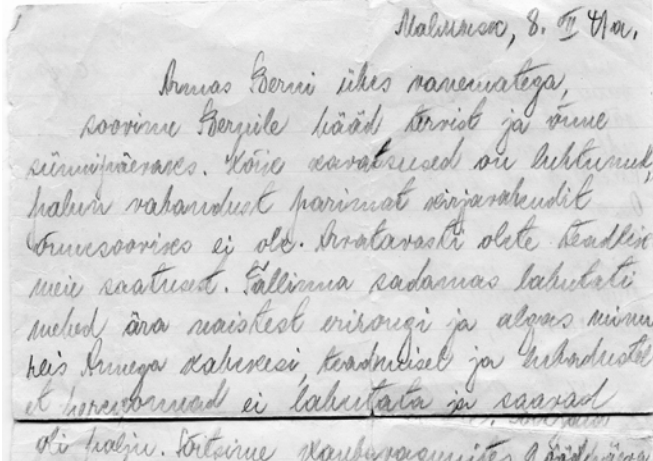 Malmõzh, 8. VII 41 a.
Armas Berni ühes vanematega,
soovime Bernile hääd tervist ja õnne
sünnipäevaks. Kõik kavatsused on luhtunud,
palun vabandust parimat kirjavahendit
õnnesooviks ei ole. Arvatavasti olete teadlik
meie saatusest. Tallinna sadamas lahutati
mehed ära naistest erirongi ja algas minu
reis Annega kahekesi, teadmisel ja lubadustel
et perekonnad ei lahutata ja saavad
oli palju. Sõitsime kaubavagunites 9 ööd päeva